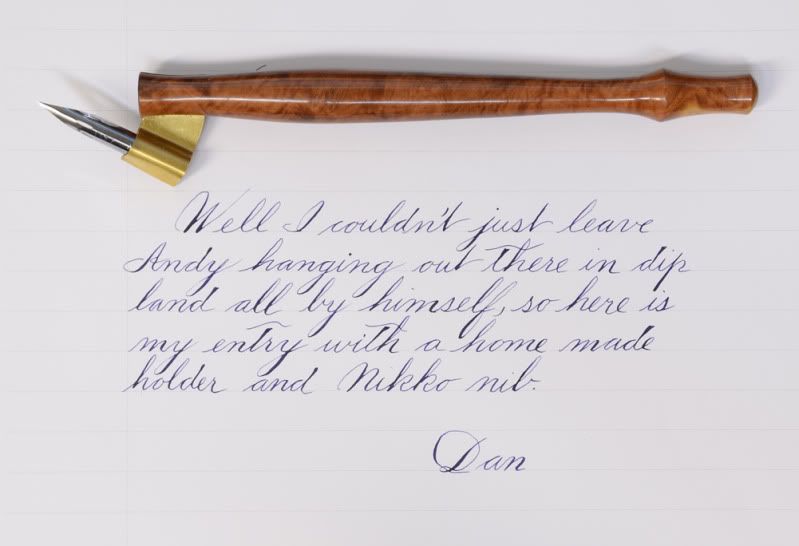 Well I couldn't just leave
Andy hanging out there in dip
land all by himself, so here is
my entry with a home made
holder and Nikko nib.
Dan